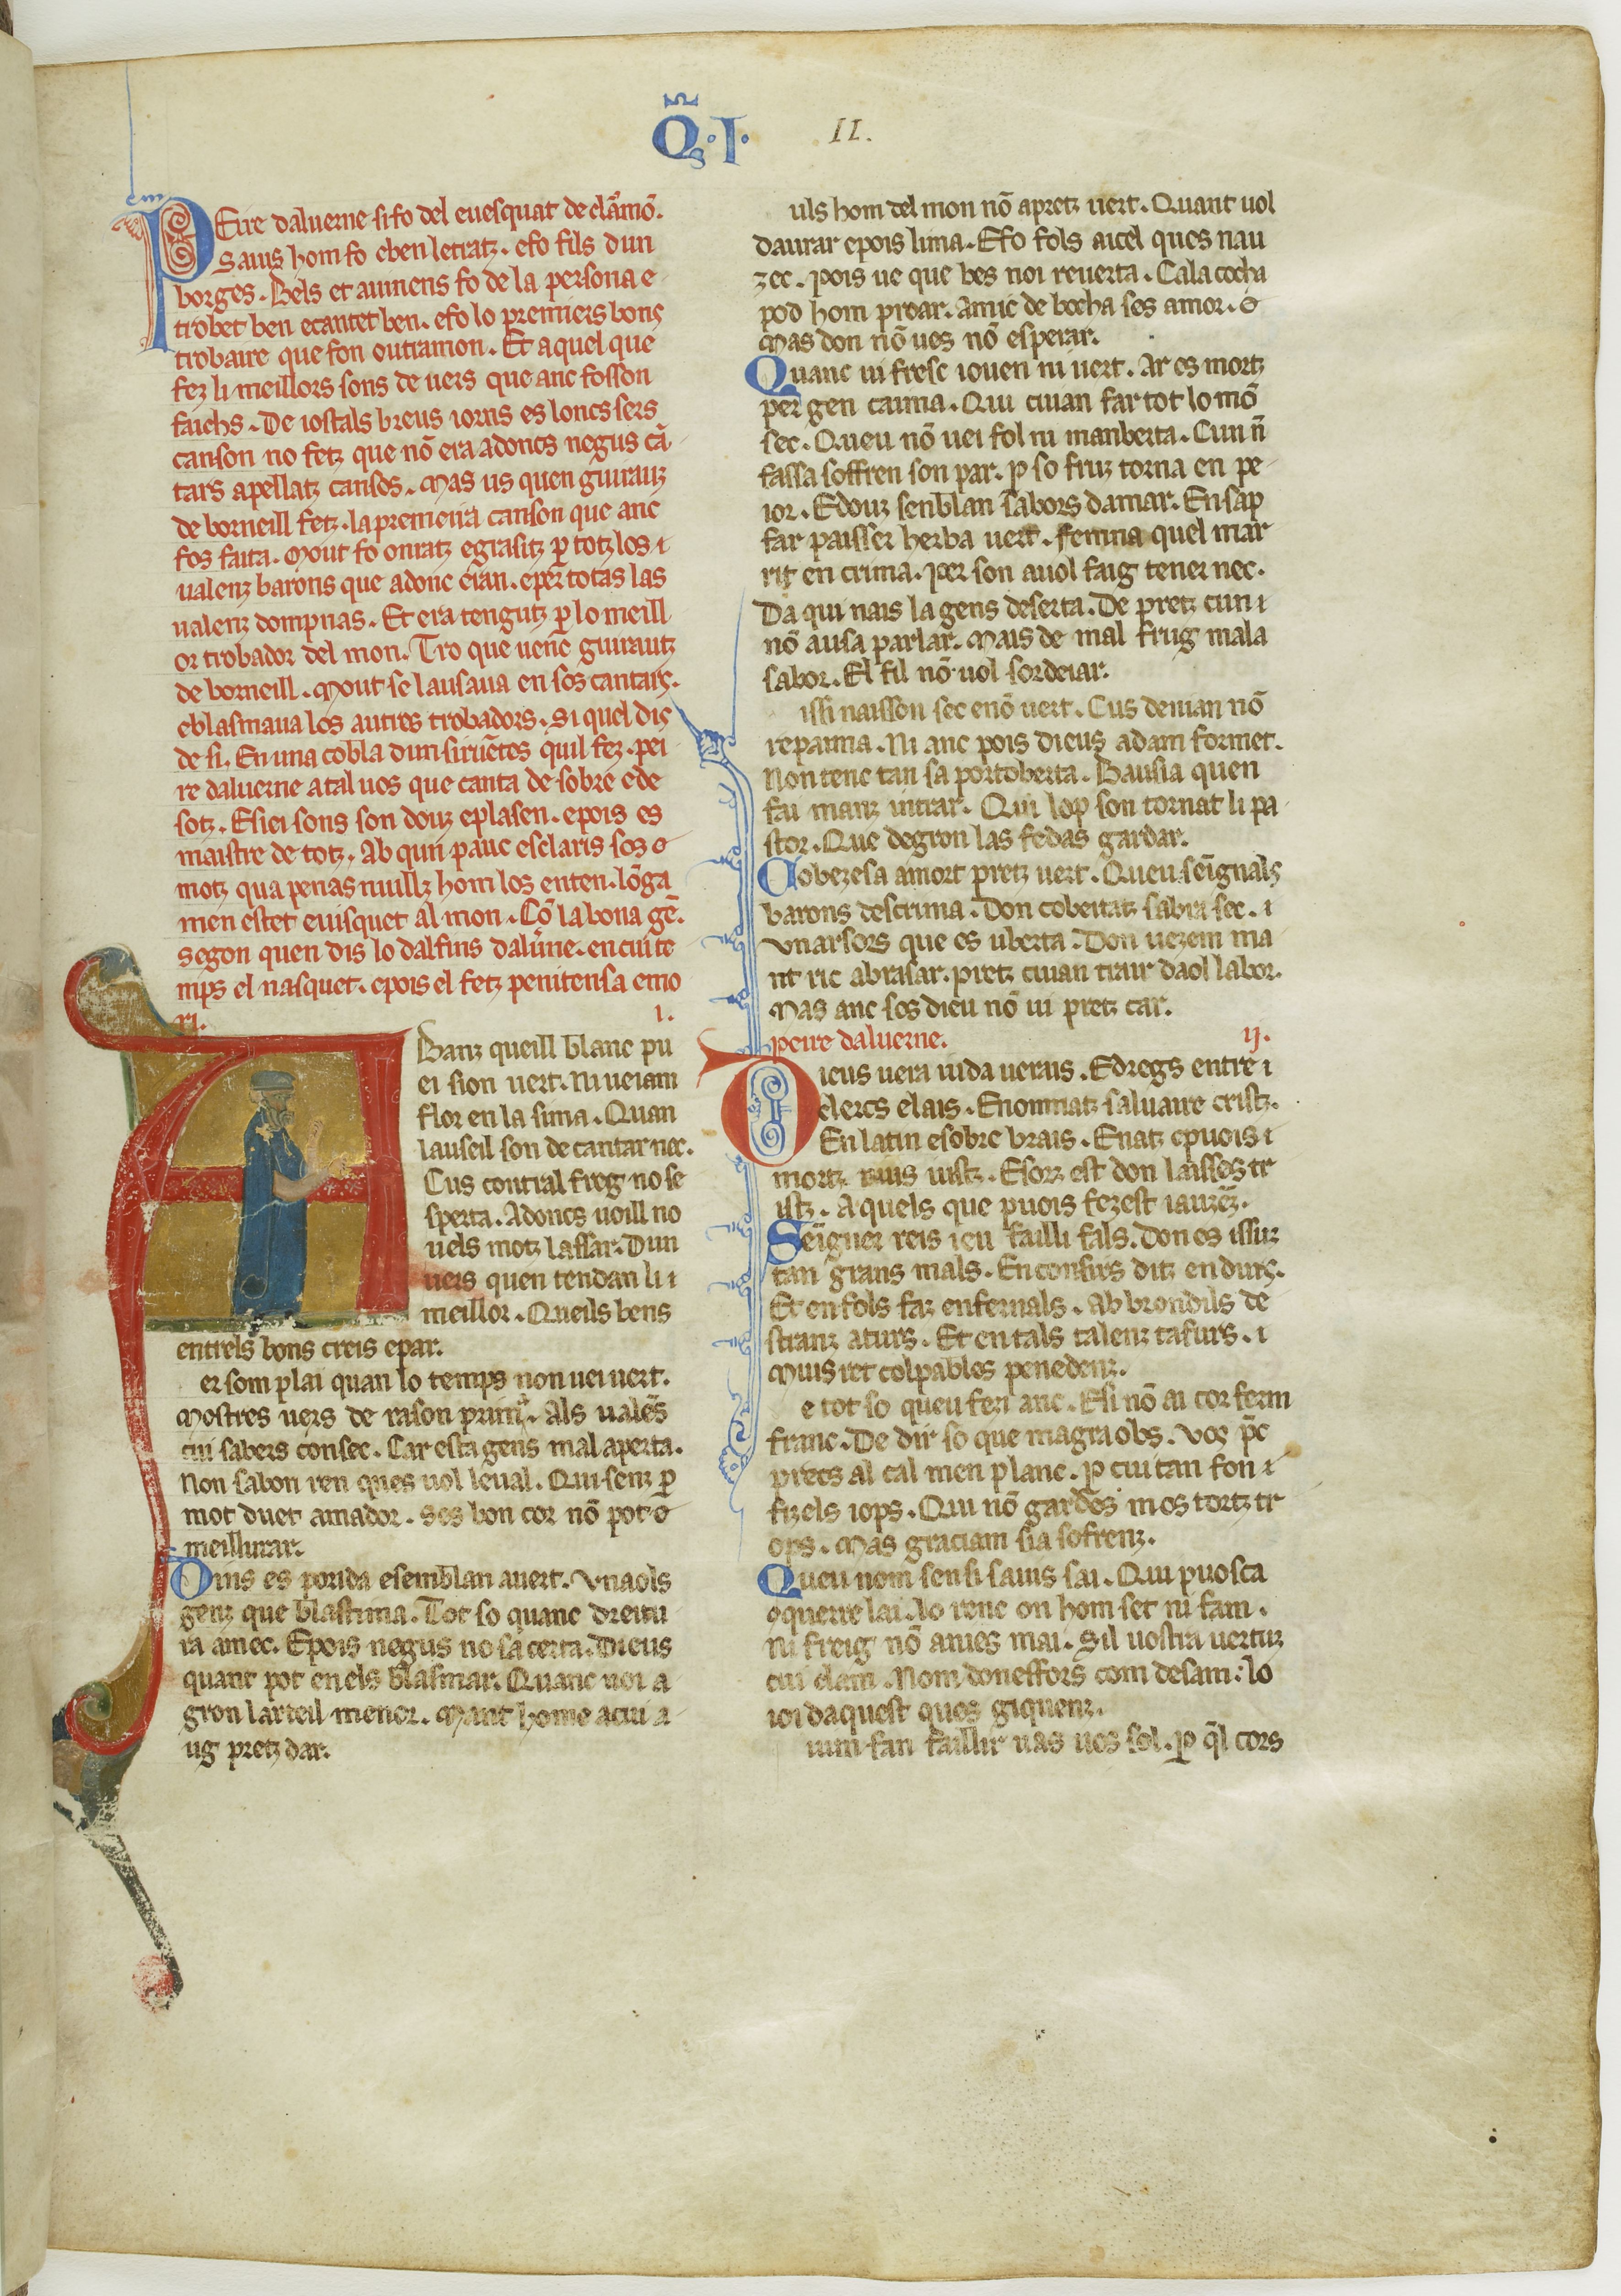 Qͣ·I· II.
PEire daluerne si fo del euesquat de claͬmō.
Sauis hom fo eben letratz. efo fils dun
borges. Bels et auinens fo de la persona e
trobet ben ecantet ben. efo lo premiers bons
trobaire que fon outramon. Et aquel que
fez li meillors sons de uers que anc fosson
faichs. De iostals breus iorns es loncs sers
canson no fetz que nō era adoncs negus cā
tars apellatz cansos. Mas us quen guirautz
de borneill fetz. la premeira canson que anc
fos faita. Mout fo onratz egrasitz ꝑ totz los
ualenz barons que adonc eran. eper totas las
ualenz dompnas. Et era tengutz ꝑ lo meill
or trobador del mon. Tro que uenc guirautz
de borneill. Mout se lausaua en sos cantars.
eblasmaua los autres trobadors. Si quel dis
de si. En una cobla dun siruētes quil fez. pei
re daluerne a tal uos que canta de sobre e de
sotz. Esiei sons son douz eplasen. epois es
maistre de totz. Ab qun pauc esclaris sos
motz qua penas nuillz hom los enten. lōga
men estet euisquet al mon. Cō la bona gē.
segon quen dis lo dalfins dalūne. en cui te
mps el nasquet. epois el fetz penitensa emo
ri. I.
Banz queill blanc pu
ei sion uert. Ni ueiam
flor en la sima. Quan
lauseil son de cantar nec.
Cus contral freg no se
sperta. Adoncs uoill no
uels motz lassar. Dun
uers quen tendan li
meillor. Queils bens
entrels bons creis epar.
er som plai quan lo temps non uei uert.
Mostres uers de rason primͣ. Als ualēs
cui sabers consec. Car esta gens mal aperta.
Non sabon ren ques uol leual. Qui senz ꝑ
mot duet amador. Ses bon cor nō pot
meillurar.
Oius es poirida esemblan auert. Vna ols
genz que blastima. Tot so quanc dreitu
ra amec. Epois negus no sa certa. Dieus
quant pot en els blasmar. Quanc noi a
gron larteil menor. Mant home acui a
ug pretz dar.
uls hom del mon nō a pretz uert. Quant uol
daurar epois lima. Efo fols aicel ques nau
zec. Pois ue que bes noi reuerta. Cala cocha
pod hom proar. Amic de bocha ses amor.
Mas don nō ues nō esperar.
Quanc ui fresc iouen ni uert. Ar es mortz
per gen caima. Qui cuian far tot lo mō
sec. Queu nō uei fol ni manberta. Cun ñ
fassa soffren son par. ꝑ so fruz torna en pe
ior. Edouz senblan sabors damar. En sap
far paisser herba uert. Femna quel mar
rit en crima. Per son auol faig tener nec.
Da qui nais la gens deserta. De pretz cun
nō ausa parlar. Mais de mal frug mala
sabor. El fil nō uol sordeiar.
issi naisson sec enō uert. Cus denian nō
repaima. Ni anc pois dieus adam formet.
Non tenc tan sa portoberta. Bausia quen
fai manz intrar. Qui lop son tornat li pa
stor. Que degron las fedas gardar.
Cobezesa amort pretz uert. Queu seignals
barons descrima. Don cobeitatz sabra sec.
Vnarsors que es uberta. Don uezem ma
nt ric abrasar. pretz cuian trair daol labor.
Mas anc ses dieu nō ui pretz car.
peire daluerne. IJ.
Dieus uera uida uerais. Edregs entre
clercs elais. Enommatz saluaire cristz.
En latin esobre brais. Enatz epuois
mortz. Esorz est don laisses tr
istz. Aquels que puois fezest iauzēz.
Seigner reis ieu failli fals. Don es issuz
tan grans mals. En consirs ditz en durs.
Et en fols faz enfernals. Ab brondils de
stranz aturs. Et en tals talenz tafurs.
Muis ret colpables penedenz.
e tot so queu fen anc. Esi nō ai cor ferm
franc. De dir so que magra obs. Vos ꝑc
precs al cal men planc. ꝑ cui tan fon
fizels iops. Qui nō gardes mos tortz tr
ops. Mas graciam sia sofrenz.
Queu nom sen si sauis sai. Qui puosca
querre lai. lo renc on hom set ni fam.
ni freig nō anies mai. Sil uostra uertuz
cui clam. Nom don effors com desam: lo
ioi daquest quos giquenz.
uim fan faillir uas uos sol. ꝑ q̄l cors